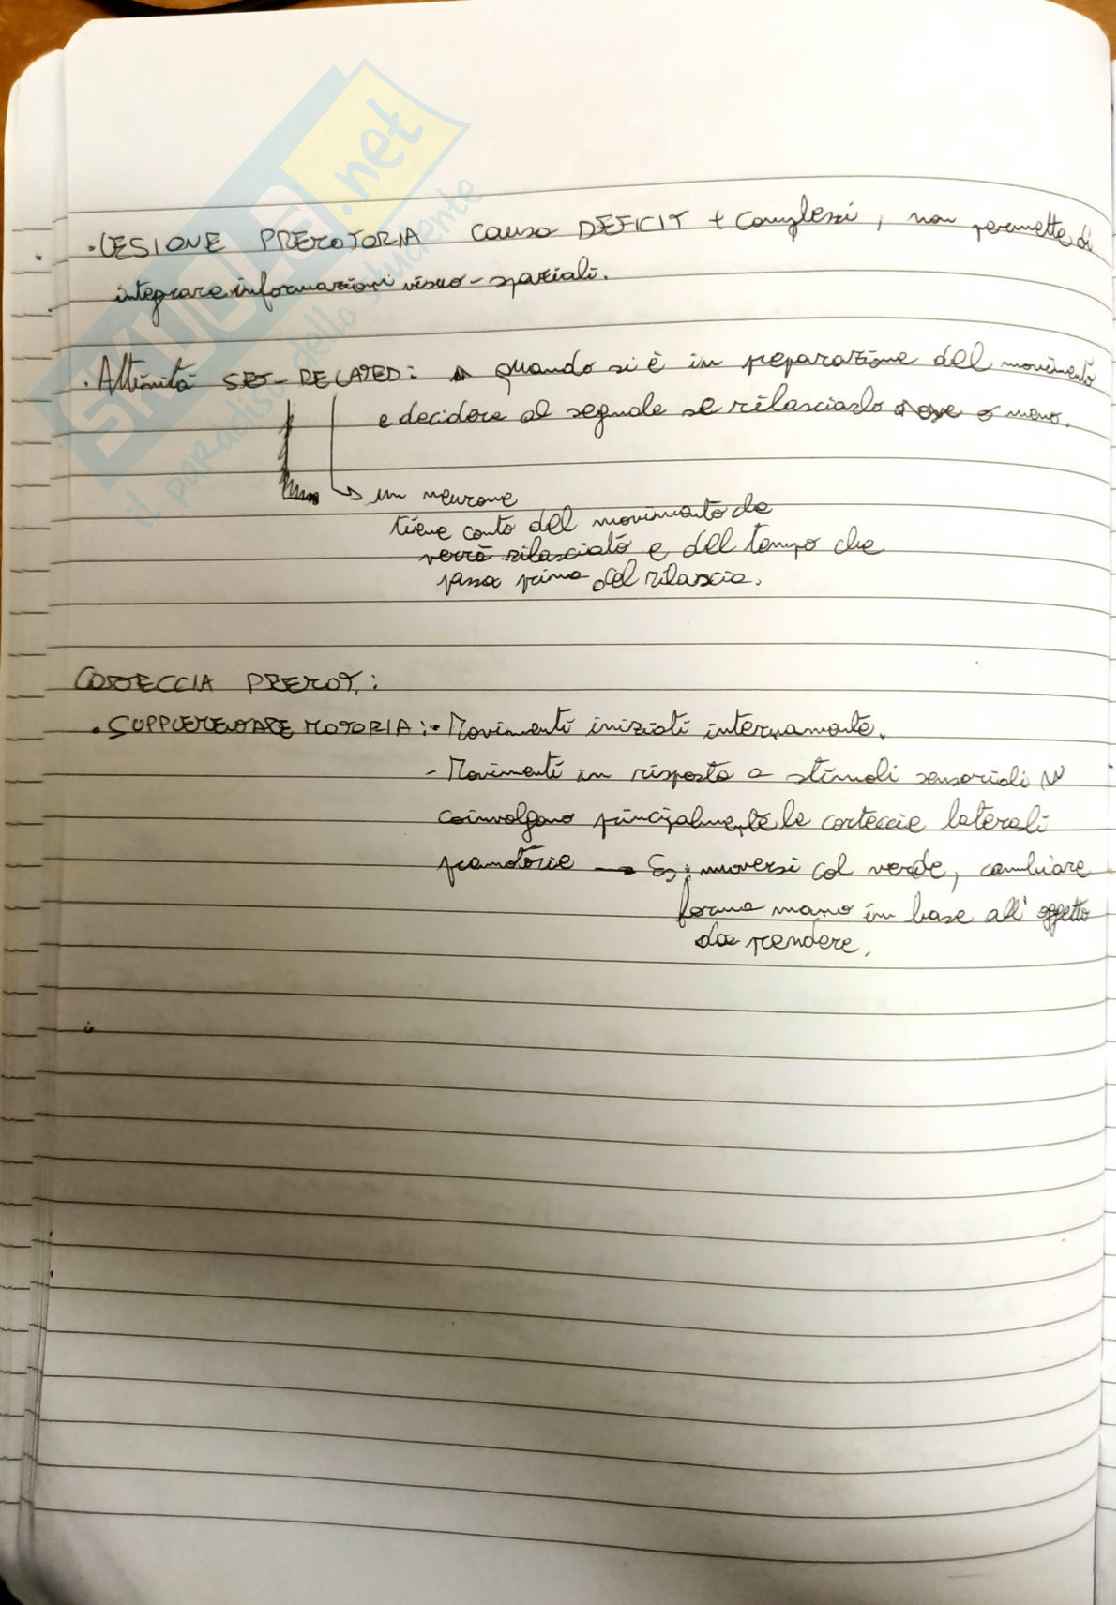 SKUOLA.net
il paradiso dello studente
• LESIONE PREMOTORIA causa DEFICIT + complessi, non permette di
integrare informazioni visuo-spaziali.
• Attività SET-RELATED: quando si è in preparazione del movimento
e decidere al segnale se rilasciarlo o meno.
↳ un neurone
tiene conto del movimento che
verrà rilasciato e del tempo che
passa prima del rilascio.
CORTECCIA PREMOT.:
• SUPPLEMENTARE MOTORIA: - Movimenti iniziati internamente.
- Movimenti in risposta a stimoli sensoriali
coinvolgono principalmente le cortecce laterali
premotorie → Es: muoversi col verde, cambiare
forma mano in base all'oggetto
da prendere.